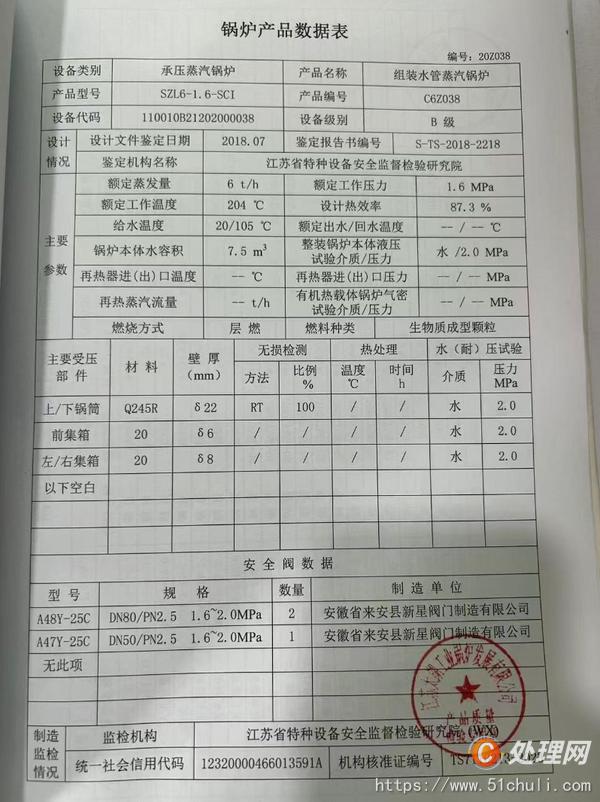 锅炉产品数据表
编号: 20Z038
设备类别 承压蒸汽锅炉 产品名称 组装水管蒸汽锅炉
产品型号 SZL6-1.6-SCI 产品编号 C6Z038
设备代码 110010B21202000038 设备级别 B 级
设计情况 设计文件鉴定日期 2018.07 鉴定报告书编号 S-TS-2018-2218
鉴定机构名称 江苏省特种设备安全监督检验研究院
主要参数 额定蒸发量 6 t/h 额定工作压力 1.6 MPa
额定工作温度 204 ℃ 设计热效率 87.3 %
给水温度 20/105 ℃ 额定出水/回水温度 --/-- ℃
锅炉本体水容积 7.5 m³ 整装锅炉本体液压试验介质/压力 水 /2.0 MPa
再热器进(出)口温度 -- ℃ 再热器进(出)口压力 --/-- MPa
再热蒸汽流量 -- t/h 有机热载体锅炉气密试验介质/压力 --/-- MPa
燃烧方式 层 燃 燃料种类 生物质成型颗粒
主要受压部 件 材 料 壁 厚 (mm) 无损检测 热处理 水（耐）压试验
方法 比例 % 温度 ℃ 时间 h 介质 压力 MPa
上/下锅筒 Q245R δ22 RT 100 / / 水 2.0
前集箱 20 δ6 / / / / 水 2.0
左/右集箱 20 δ8 / / / / 水 2.0
以下空白
安 全 阀 数 据
型 号 规 格 数量 制 造 单 位
A48Y-25C DN80/PN2.5 1.6~2.0MPa 2 安徽省来安县新星阀门制造有限公司
A47Y-25C DN50/PN2.5 1.6~2.0MPa 1 安徽省来安县新星阀门制造有限公司
无此项
制造监检情况 监检机构 江苏省特种设备安全监督检验研究院 (WX)
统一社会信用代码 12320000466013591A 机构核准证编号
产品质量
处理网
https://www.51chuli.com/